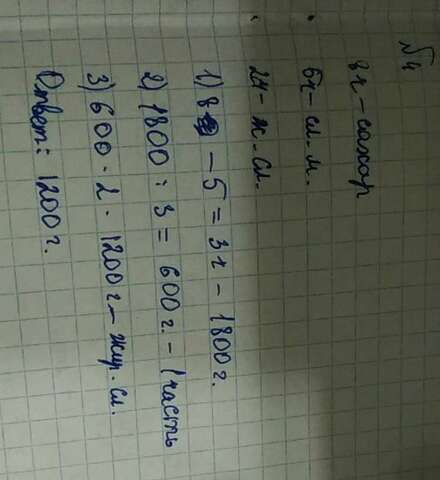 №4
8ч - сахар
5ч - сл. м.
2ч - ж. сл.
1) 8 - 5 = 3ч - 1800г.
2) 1800 : 3 = 600г. - 1 часть
3) 600 · 2 · 1200г - жир. сл.
Ответ: 1200г.